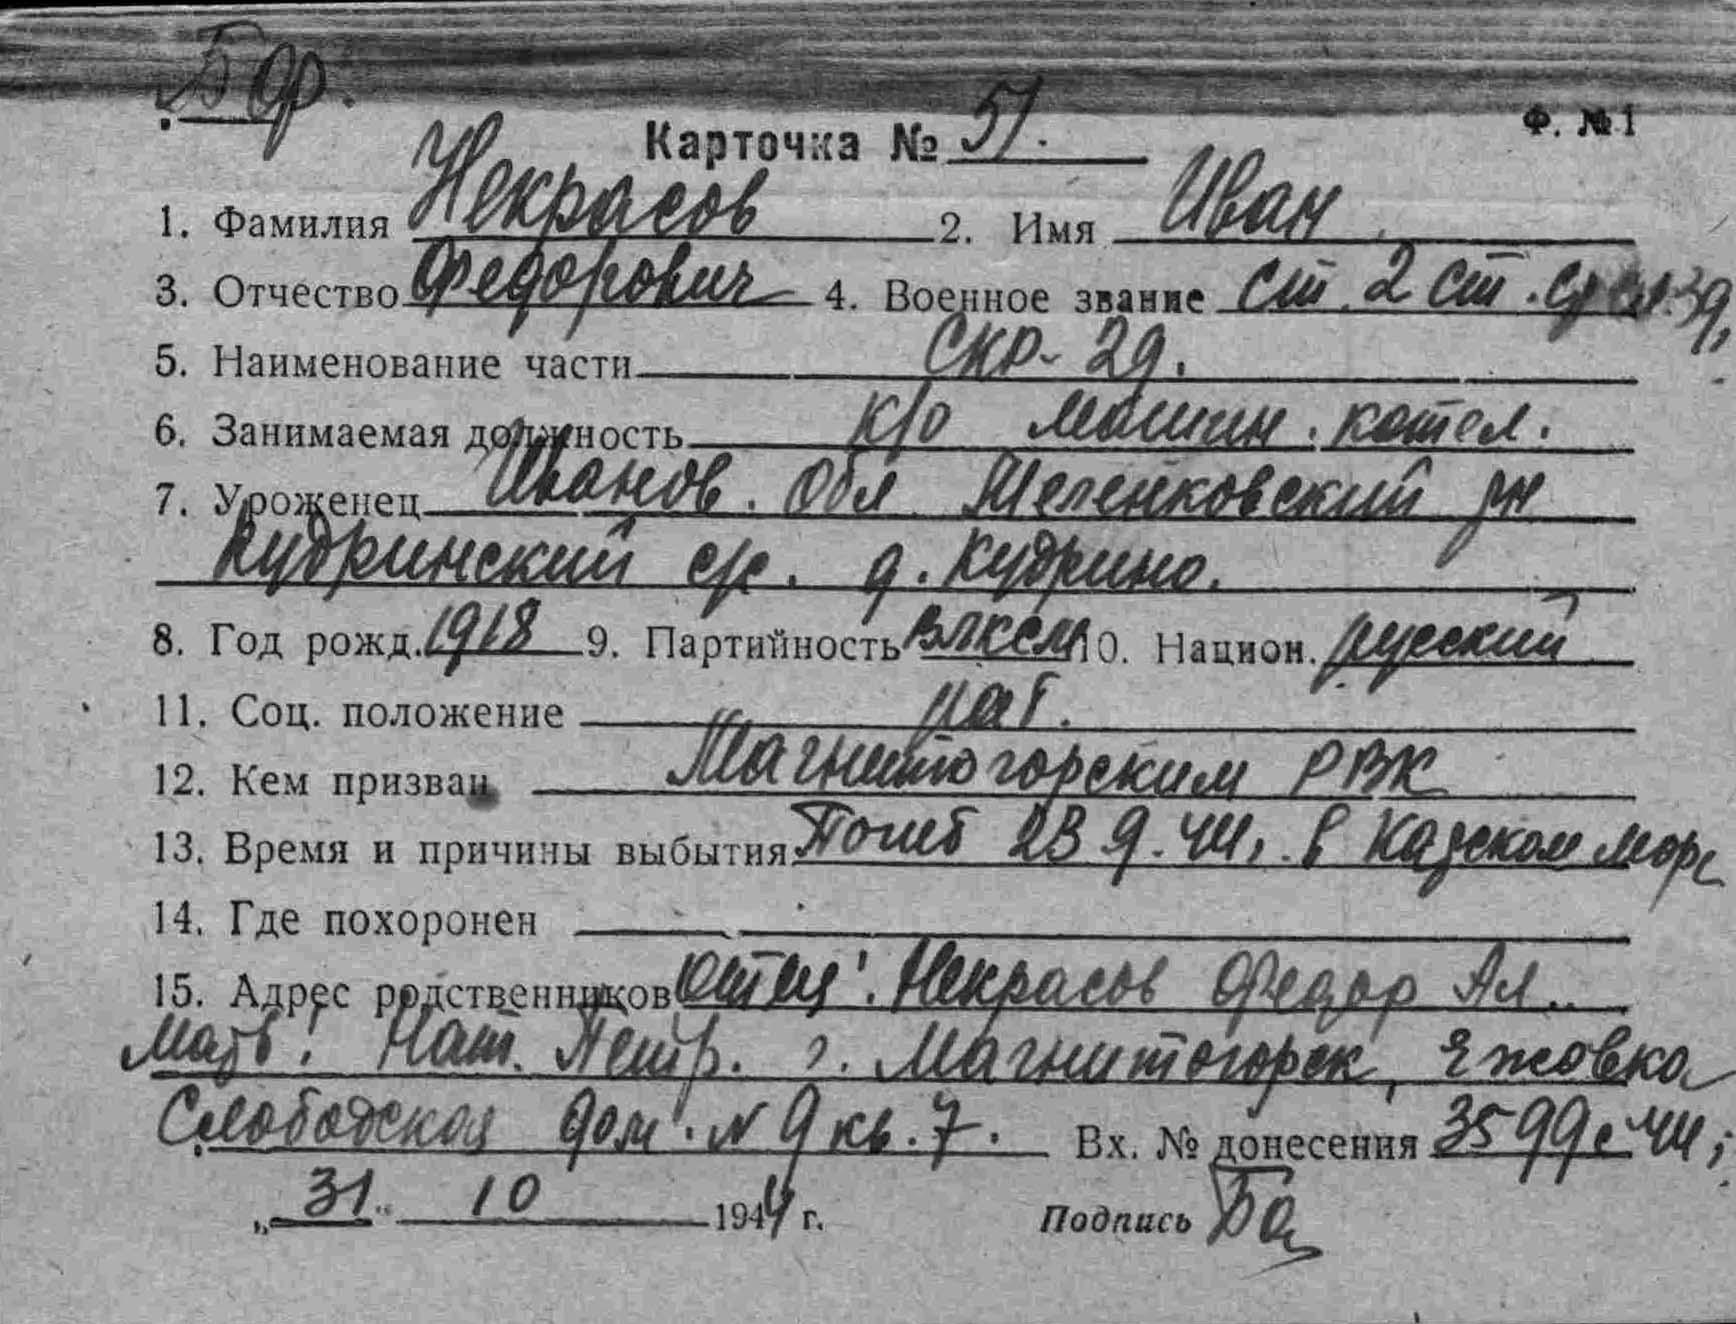 Бар.
Ф. №1
Карточка № 51.
1. Фамилия Некрасов 2. Имя Иван
3. Отчество Федорович 4. Военное звание ст. 2 ст. 39,
5. Наименование части СКР-29.
6. Занимаемая должность к/о машин. котел.
7. Уроженец Иванов. Обл Меленковский рн
Кудринский с/с. д. Кудрино.
8. Год рожд. 1918 9. Партийность ВЛКСМ 10. Национ. русский
11. Соц. положение раб.
12. Кем призван Магнитогорским РВК
13. Время и причины выбытия Погиб 23 9. 44 г. в Карском море
14. Где похоронен
15. Адрес родственников отец: Некрасов Федор Ал..
мать: Нат. Петр. г. Магнитогорск, Ежовка
Слободская дом. N 9 кв. 7. Вх. № донесения 3599с 44 г
„31" 10 1944 г. Подпись